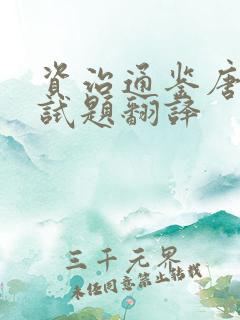 资治通鉴唐
试题翻译
三千元界
未经同意禁止转载